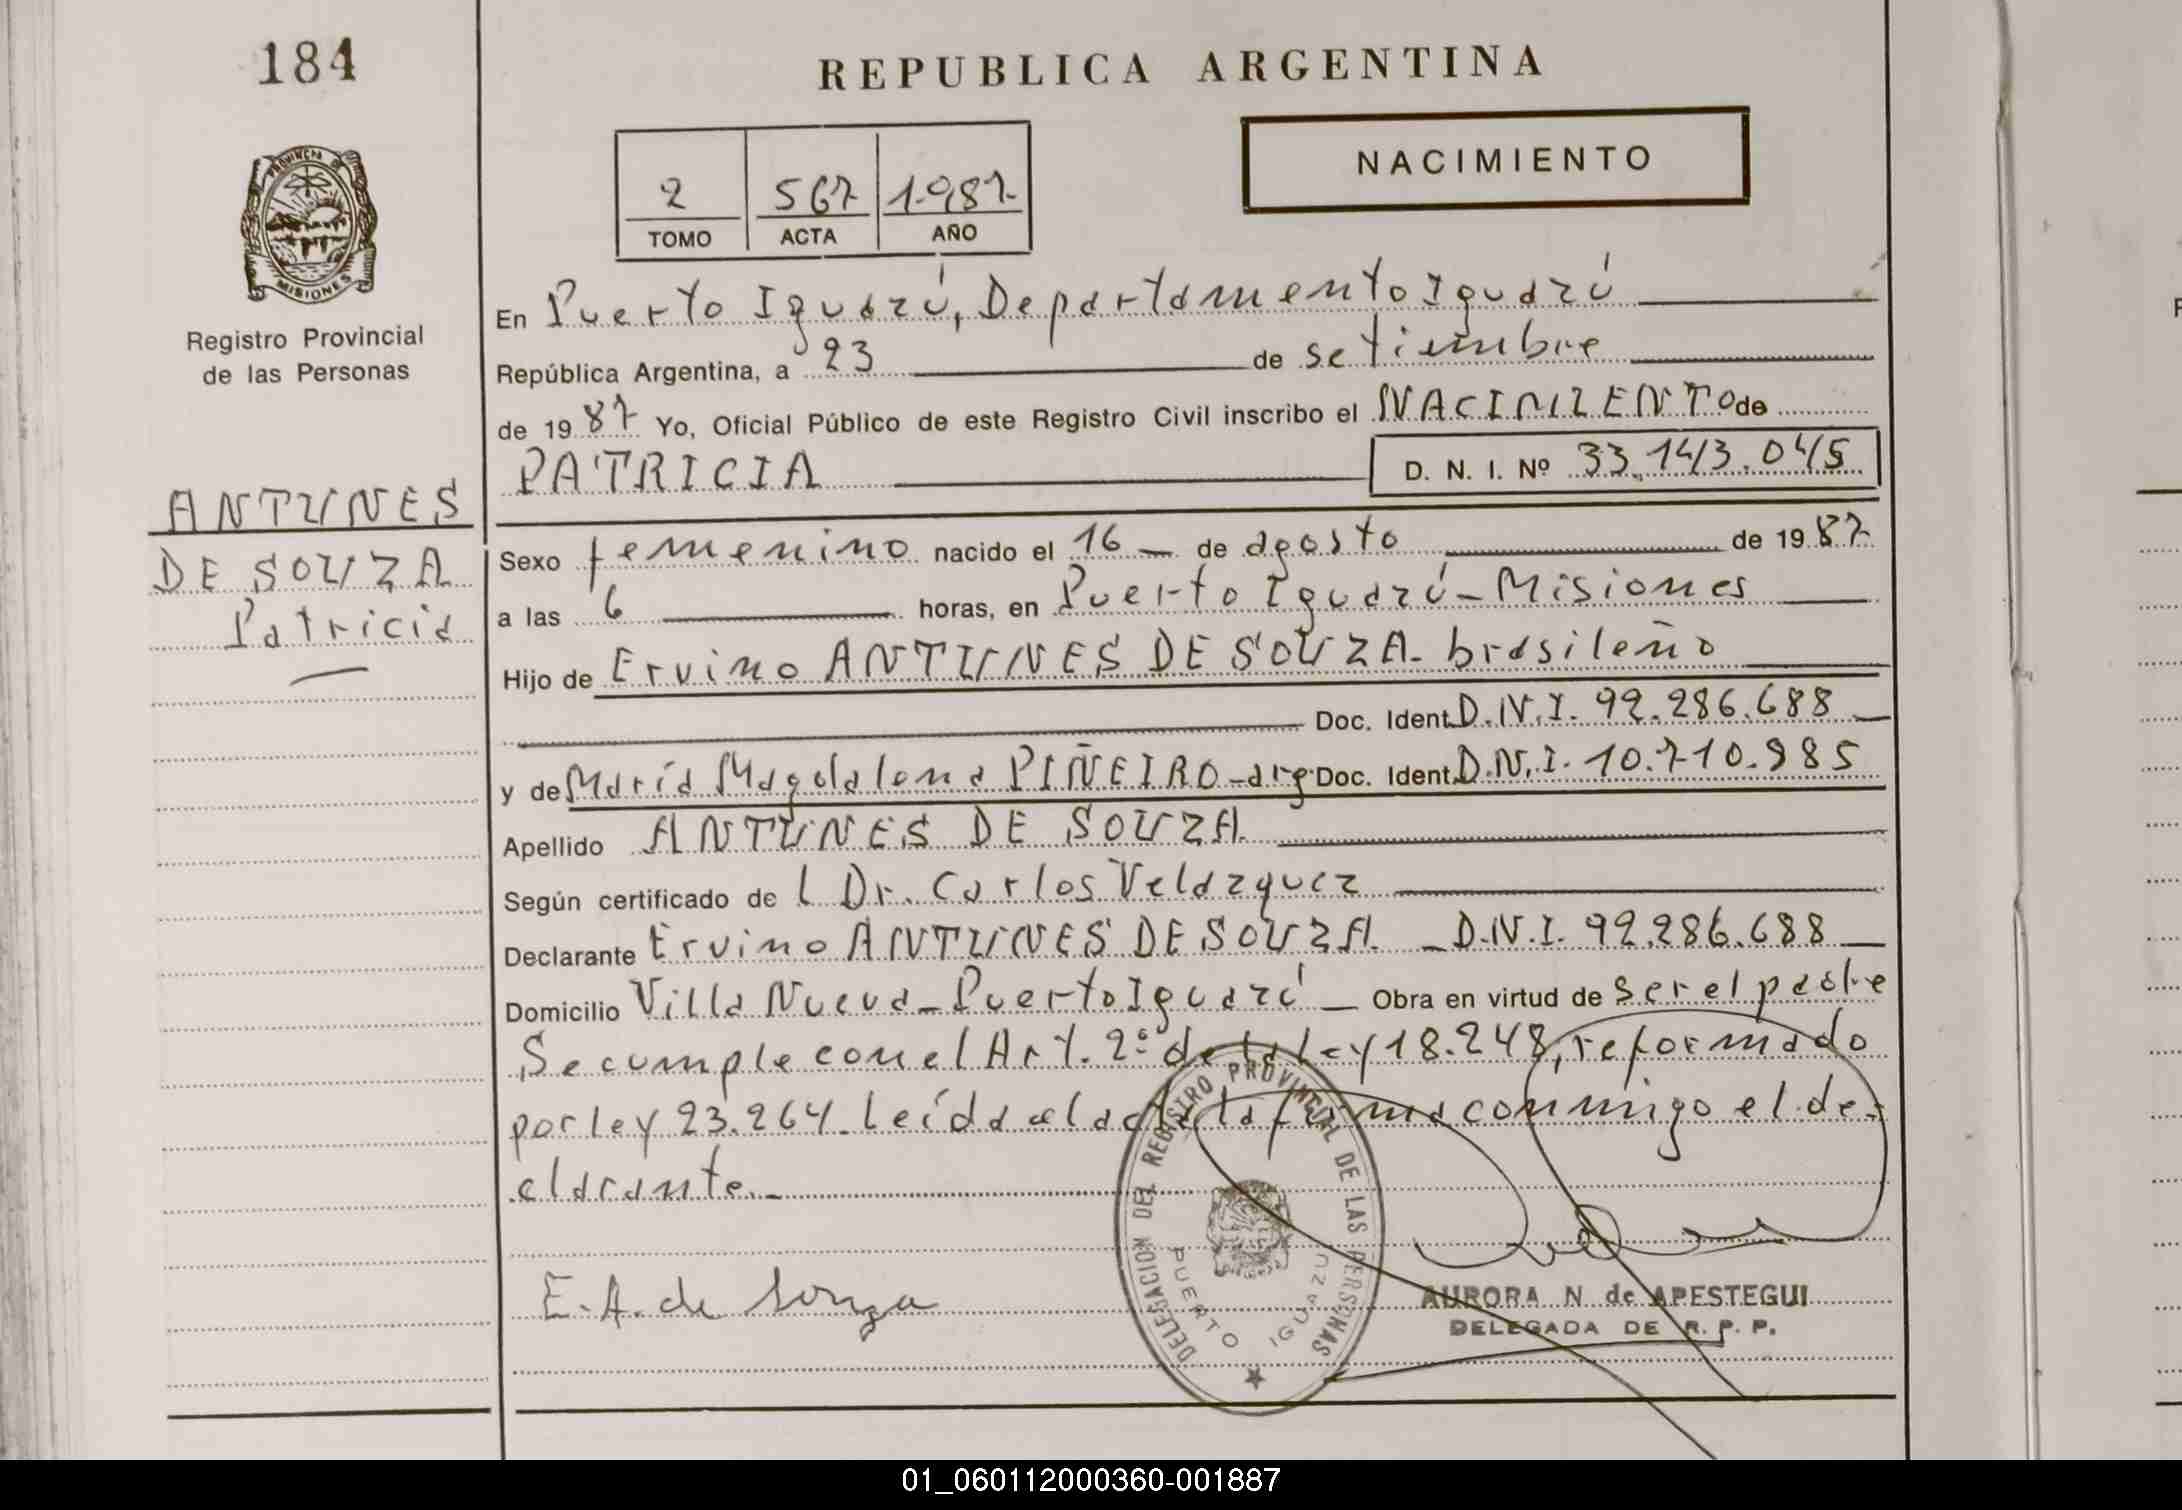 184
REPUBLICA ARGENTINA
NACIMIENTO
2 567 1.987
TOMO ACTA AÑO
PROVINCIA DE MISIONES
Registro Provincial
de las Personas
ANTUNES
DE SOUZA
Patricia
En Puerto Iguazú, Departamento Iguazú
República Argentina, a 23 de setiembre
de 1987 Yo, Oficial Público de este Registro Civil inscribo el NACIMIENTO de
PATRICIA D. N. I. Nº 33.143.045
Sexo femenino nacido el 16 — de agosto de 1987
a las 6 horas, en Puerto Iguazú - Misiones
Hijo de Ervino ANTUNES DE SOUZA - brasileño
Doc. Ident. D.N.I. 92.286.688
y de María Magdalena PIÑEIRO - arg. Doc. Ident. D.N.I. 10.710.985
Apellido ANTUNES DE SOUZA
Según certificado de l Dr. Carlos Velazquez
Declarante Ervino ANTUNES DE SOUZA - D.N.I. 92.286.688
Domicilio Villa Nueva - Puerto Iguazú - Obra en virtud de ser el padre
Se cumple con el Art. 2º de la ley 18.248, reformado
por ley 23.264. Leída el acta la firma conmigo el de-
clarante.-
E. A. de Souza
DELEGACION DEL REGISTRO PROVINCIAL DE LAS PERSONAS
PUERTO IGUAZU
AURORA N de APESTEGUI
DELEGADA DE R. P. P.
01_060112000360-001887